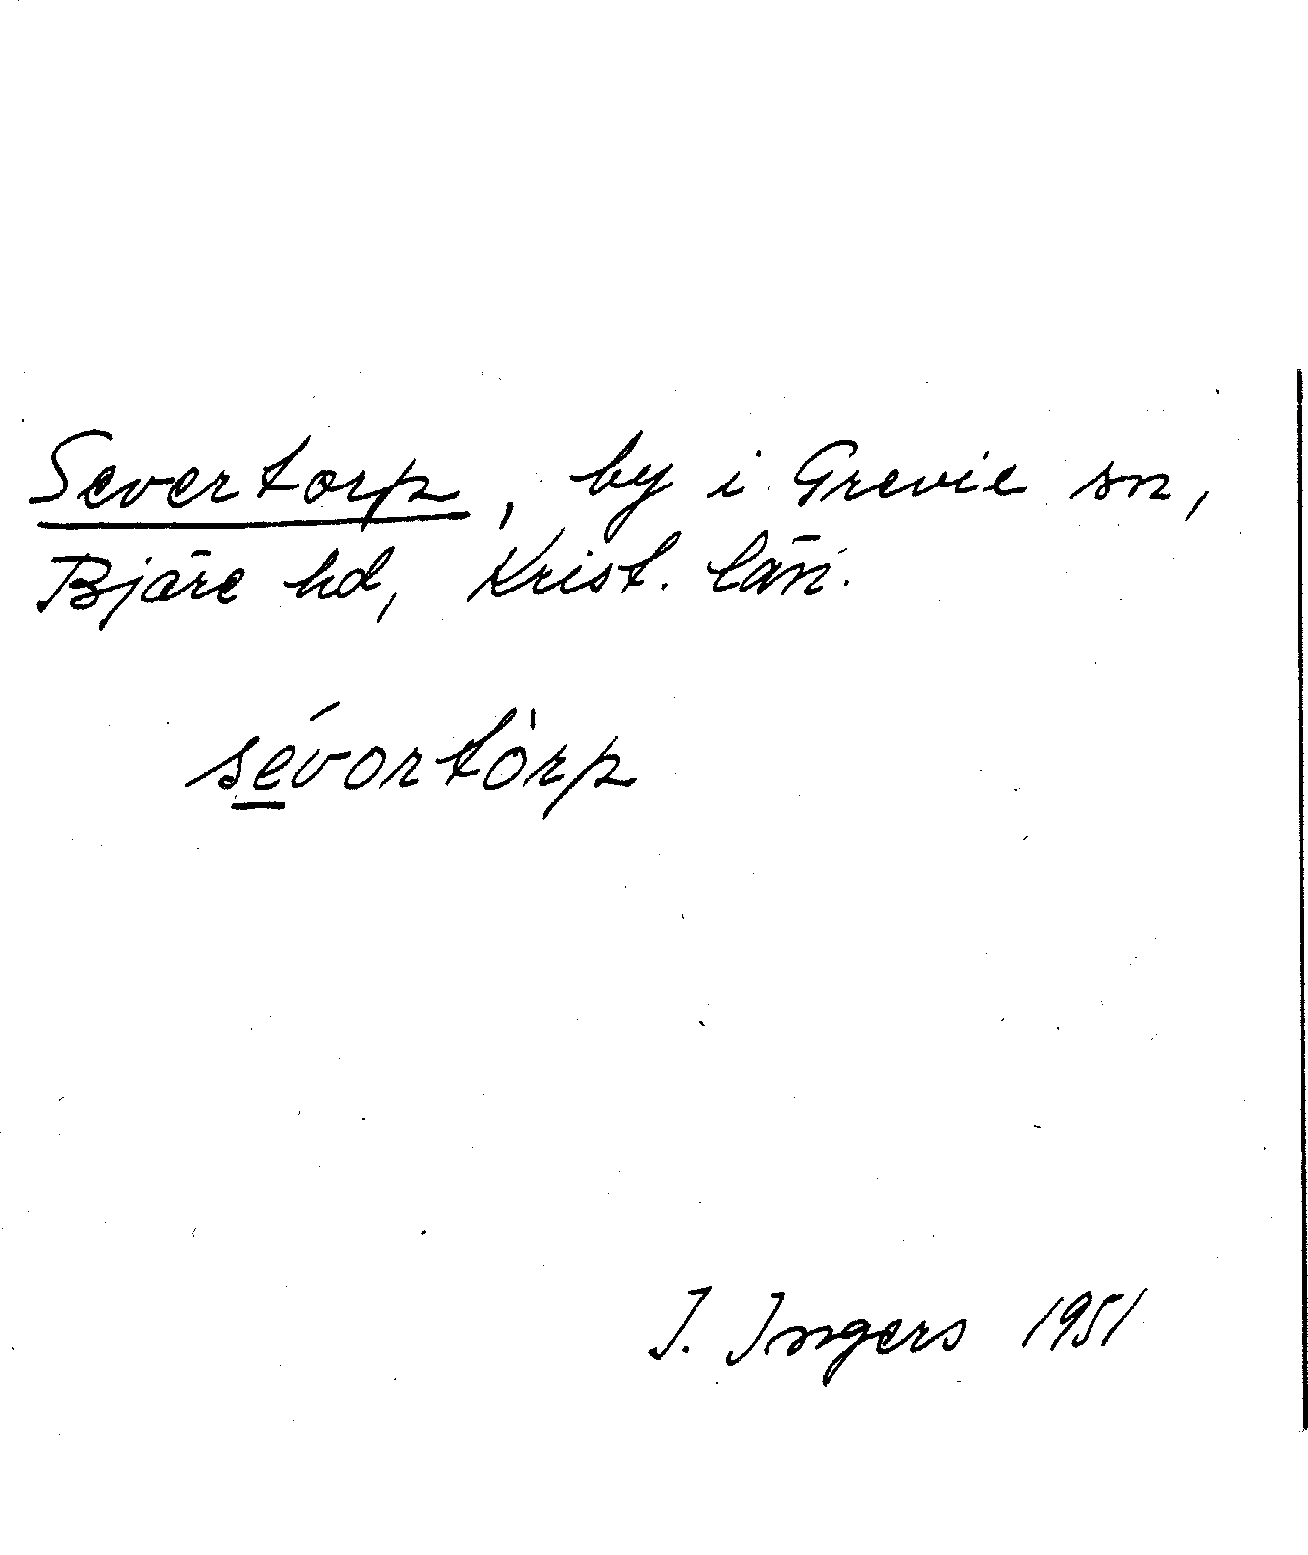 Severtorp, by i Grevie sn,
Bjäre hd, Krist. län.
sévortòrp
I. Ingers 1951